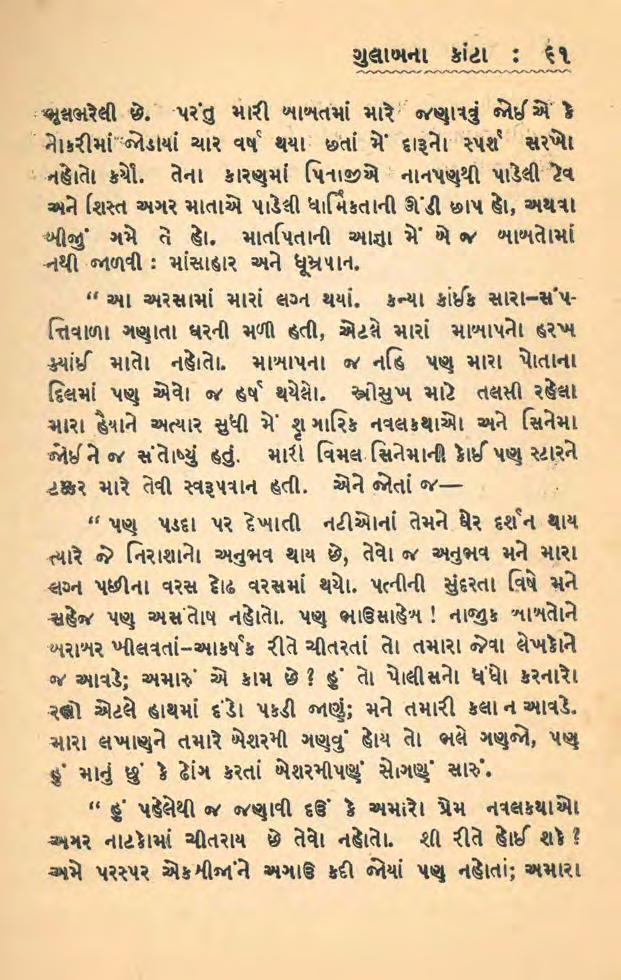 ગુલાબના કાંટા : ૬૧
ભૂલભરેલી છે. પરંતુ મારી બાબતમાં મારે જણાવવું જોઈએ કે
નોકરીમાં જોડાયાં ચાર વર્ષ થયા છતાં મેં દારૂનો સ્પર્શ સરખો
નહોતો કર્યો. તેના કારણમાં પિતાજીએ નાનપણથી પાડેલી ટેવ
અને શિસ્ત અગર માતાએ પાડેલી ધાર્મિકતાની ઊંડી છાપ હો, અથવા
બીજું ગમે તે હો. માતપિતાની આજ્ઞા મેં બે જ બાબતોમાં
નથી જાળવી : માંસાહાર અને ધૂમ્રપાન.
“ આ અરસામાં મારાં લગ્ન થયાં. કન્યા કાંઈક સારા–સંપ-
ત્તિવાળા ગણાતા ઘરની મળી હતી, એટલે મારાં માબાપનો હરખ
ક્યાંઈ માતો નહોતો. માબાપના જ નહિ પણ મારા પોતાના
દિલમાં પણ એવો જ હર્ષ થયેલો. સ્ત્રીસુખ માટે તલસી રહેલા
મારા હૈયાને અત્યાર સુધી મેં શૃંગારિક નવલકથાઓ અને સિનેમા
જોઈને જ સંતોષ્યું હતું. મારી વિમલ સિનેમાની કોઈ પણ સ્ટારને
ટક્કર મારે તેવી સ્વરૂપવાન હતી. એને જોતાં જ—
“ પણ પડદા પર દેખાતી નટીઓનાં તેમને ઘેર દર્શન થાય
ત્યારે જે નિરાશાનો અનુભવ થાય છે, તેવો જ અનુભવ મને મારા
લગ્ન પછીના વરસ દોઢ વરસમાં થયો. પત્નીની સુંદરતા વિષે મને
સહેજ પણ અસંતોષ નહોતો. પણ ભાઉસાહેબ ! નાજુક બાબતોને
બરાબર ખીલવતાં–આકર્ષક રીતે ચીતરતાં તો તમારા જેવા લેખકોને
જ આવડે; અમારું એ કામ છે ? હું તો પોલીસનો ધંધો કરનારો
રહ્યો એટલે હાથમાં દંડો પકડી જાણું; મને તમારી કલા ન આવડે.
મારા લખાણને તમારે બેશરમી ગણવું હોય તો ભલે ગણજો, પણ
હું માનું છું કે ઢોંગ કરતાં બેશરમીપણું સોગણું સારું.
“ હું પહેલેથી જ જણાવી દઉં કે અમારો પ્રેમ નવલકથાઓ
અગર નાટકોમાં ચીતરાય છે તેવો નહોતો. શી રીતે હોઈ શકે ?
અમે પરસ્પર એકબીજાંને અગાઉ કદી જોયાં પણ નહોતાં; અમારા